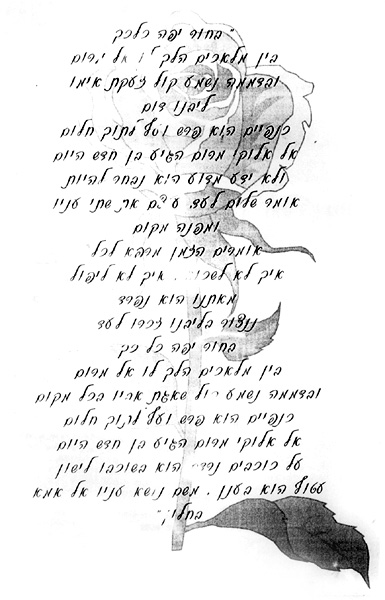 "בחור יפה כלכך
בין מלאכים הלך לו אל מרום
ובדממה נשמע קול זעקת אימו
ליבנו דום
כנפיים הוא פרש ועף לתוך חלום
אל אלוקי מרום הגיע בן חדש היום
ולא ידע מדוע הוא נבחר להיות
אומר שלום לעד. עצם את שתי עניו
ומפנה מקום
אומרים הזמן מרפא לכל
איך לא לשכוח. איך לא ליפול
מאתנו הוא נפרד
ננצור בליבנו זכרו לעד
בחור יפה כל כך
בין מלאכים הלך לו אל מרום
ובדממה נשמע קול שאגת אביו בכל מקום
כנפיים הוא פרש ועף לתוך חלום
אל אלוקי מרום הגיע בן חדש היום
על כוכבים נרדם הוא בשוכבו לישון
עטוף הוא בענן. משם נושא עניו אל אמא
בחלון"